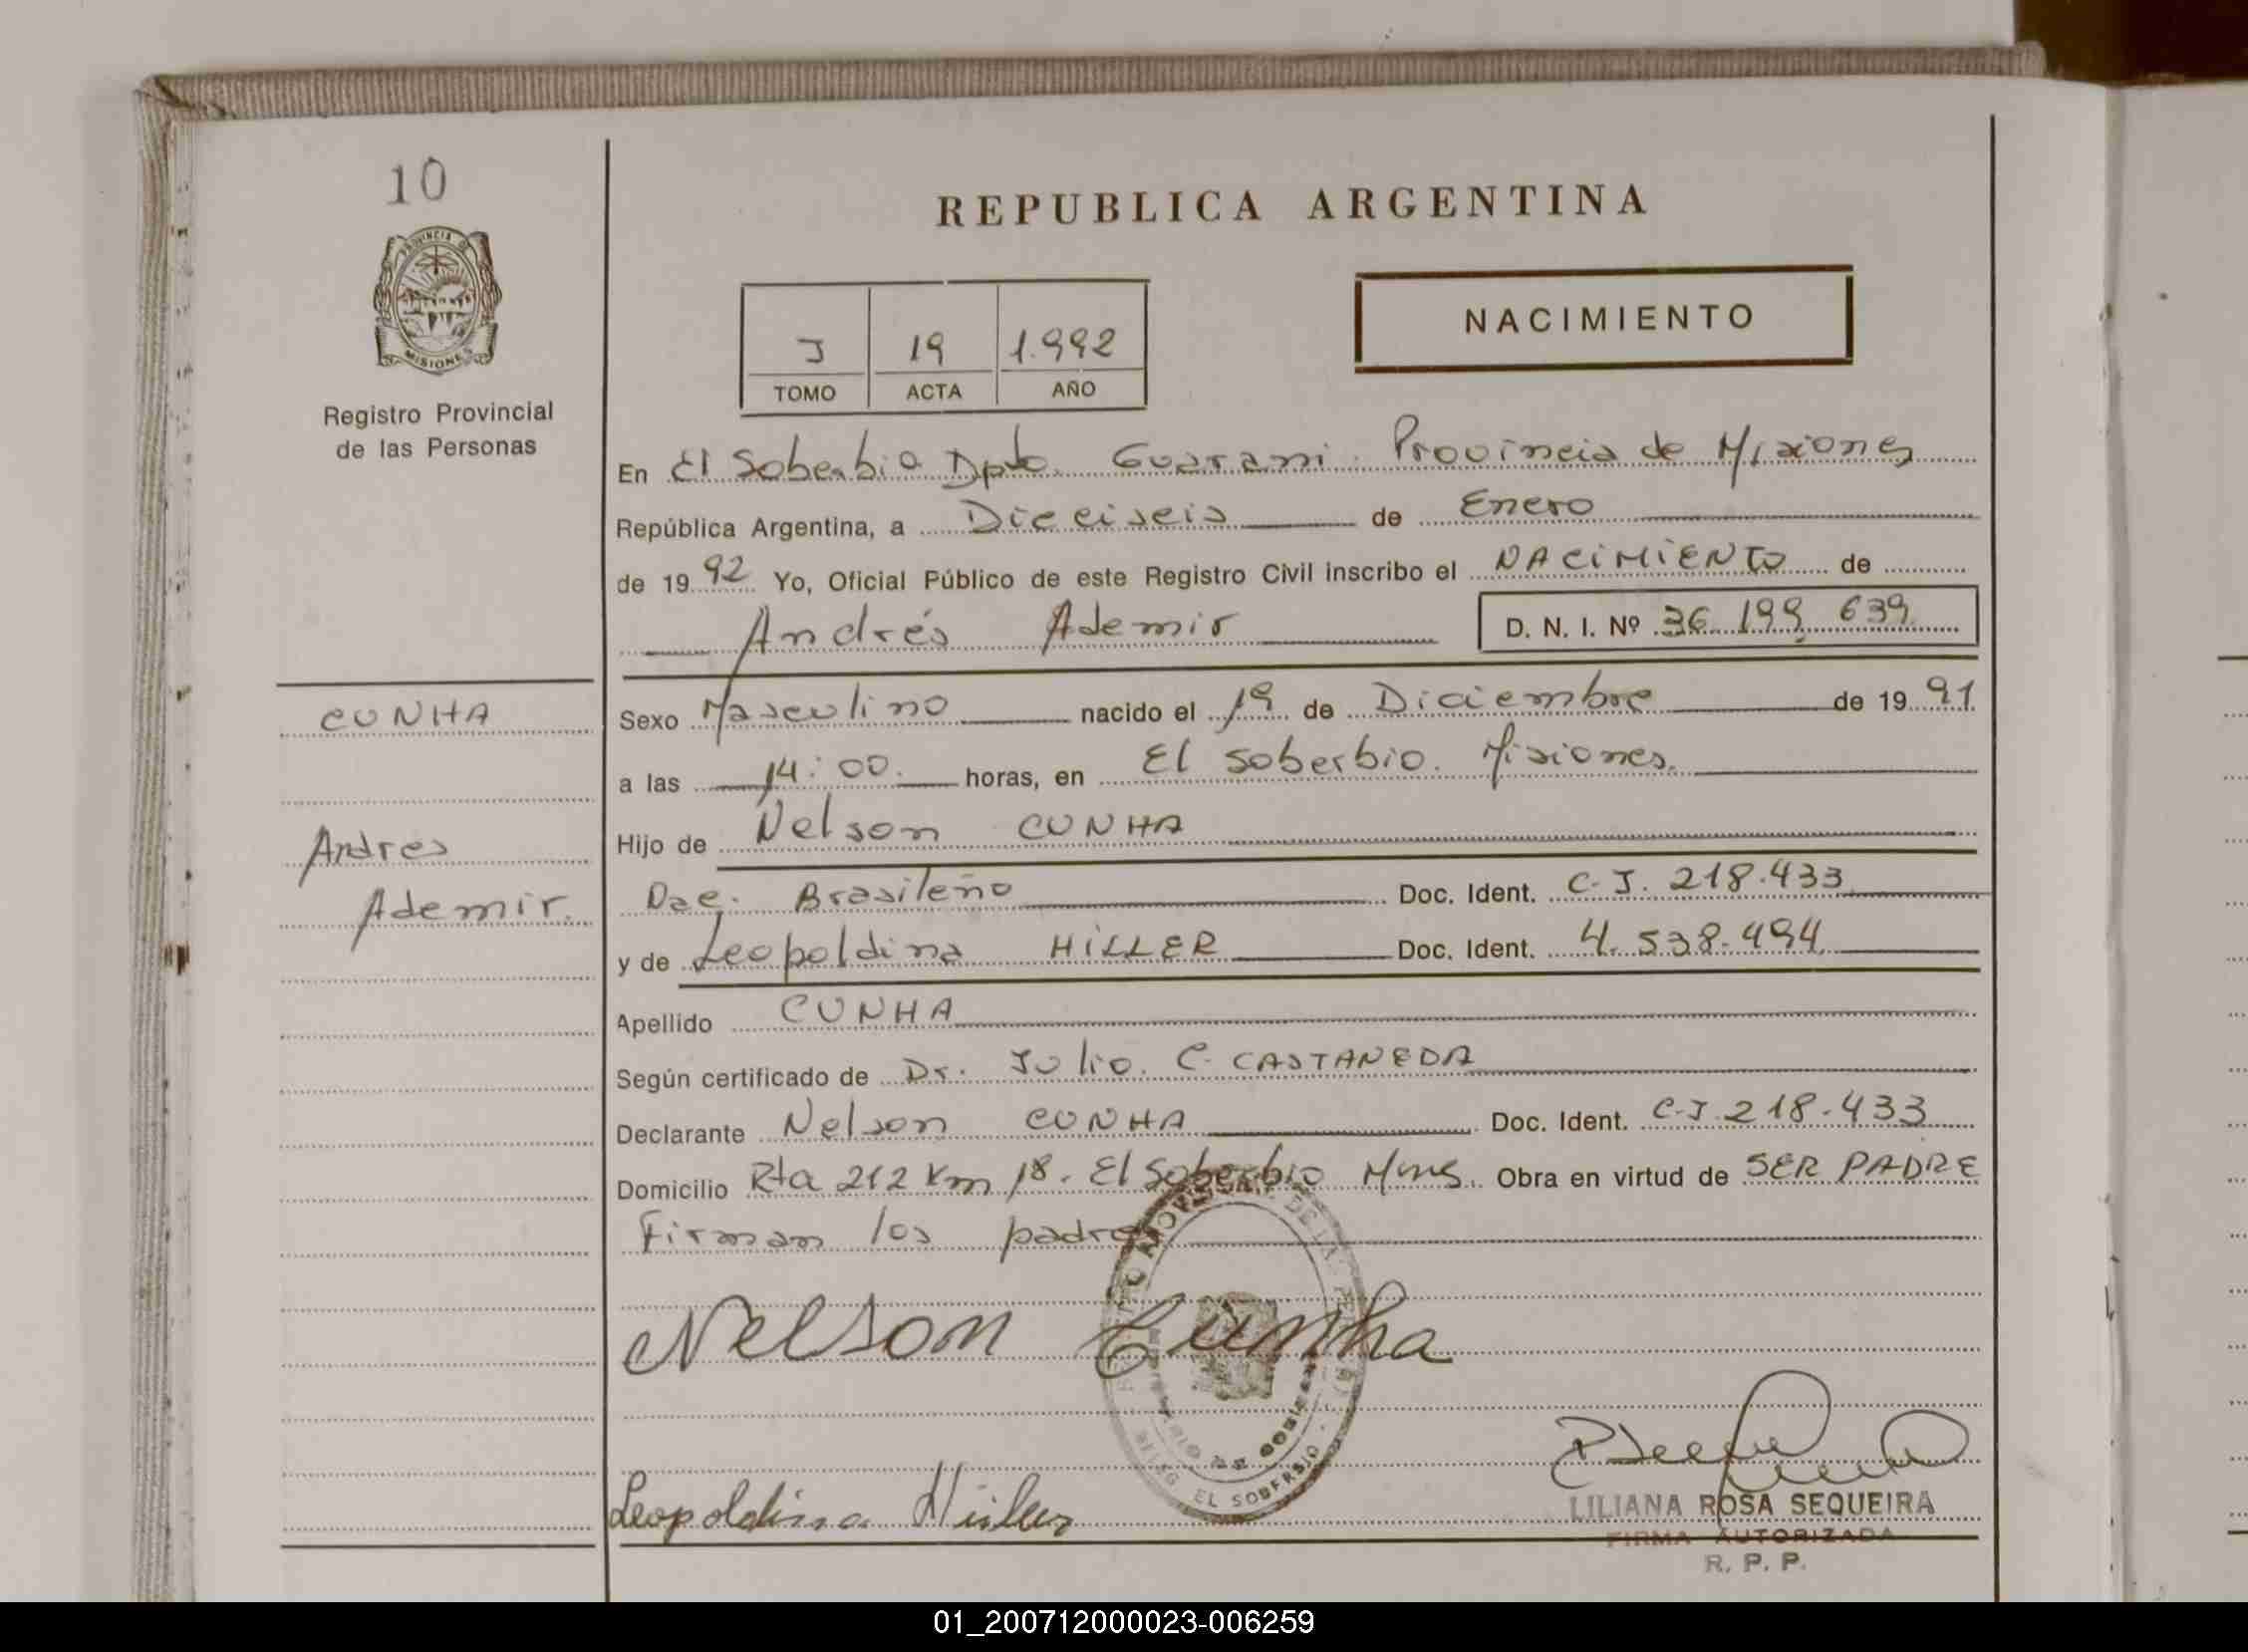 10
PROVINCIA DE
MISIONES
Registro Provincial
de las Personas
REPUBLICA ARGENTINA
NACIMIENTO
J 19 1.992
TOMO ACTA AÑO
En El Soberbio Dpto. Guarani. Provincia de Misiones
República Argentina, a Dieciseis de Enero
de 19 92 Yo, Oficial Público de este Registro Civil inscribo el NACIMIENTO de
Andrés Ademir D. N. I. Nº 36 199 639
CUNHA
Andres
Ademir.
Sexo Masculino nacido el 19 de Diciembre de 19 91
a las 14:00. horas, en El Soberbio. Misiones.
Hijo de Nelson CUNHA
Nac. Brasileño Doc. Ident. C.I. 218.433
y de Leopoldina HILLER Doc. Ident. 4.538.494
Apellido CUNHA
Según certificado de Dr. Julio. C. CASTANEDA
Declarante Nelson CUNHA Doc. Ident. C.I. 218.433
Domicilio Rta 212 Km 18. El Soberbio Mnes. Obra en virtud de SER PADRE
Firman los padres
Nelson Cunha
EL SOBERBIO
Leopoldina Hiller
LILIANA ROSA SEQUEIRA
FIRMA AUTORIZADA
R. P. P.
01_200712000023-006259